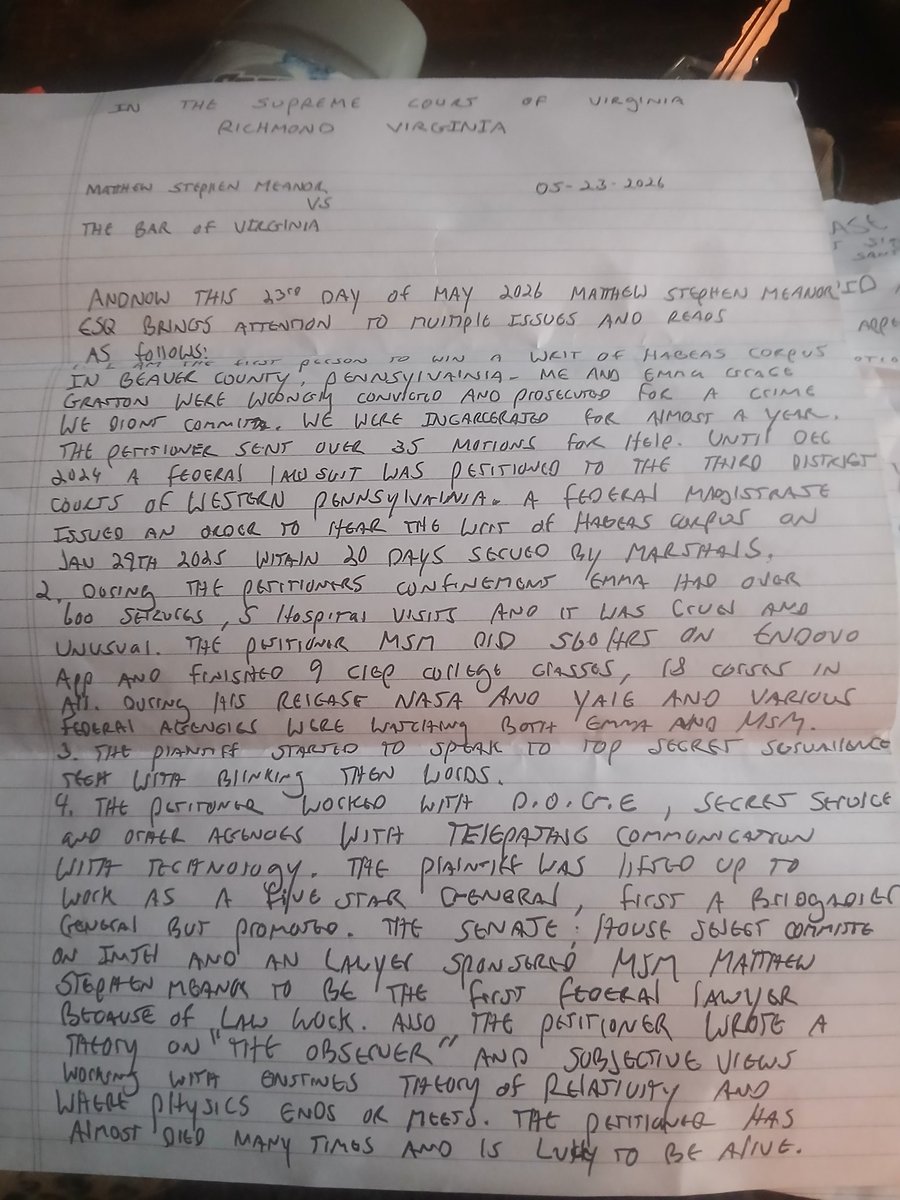 IN THE SUPREME COURT OF VIRGINIA
RICHMOND VIRGINIA
MATTHEW STEPHEN MEANOR 05-23-2026
VS
THE BAR OF VIRGINIA
ANDNOW THIS 23RD DAY OF MAY 2026 MATTHEW STEPHEN MEANOR JD
ESQ BRINGS ATTENTION TO MULTIPLE ISSUES AND READS
AS FOLLOWS:
I AM THE FIRST PERSON TO WIN A WRIT OF HABEAS CORPUS
IN BEAVER COUNTY, PENNSYLVAINIA- ME AND EMMA GRACE
GRATTON WERE WRONGLY CONVICTED AND PROSECUTED FOR A CRIME
WE DIDNT COMMIT. WE WERE INCARCERATED FOR ALMOST A YEAR.
THE PETITIONER SENT OVER 35 MOTIONS FOR HELP. UNTIL DEC
2024 A FEDERAL LAWSUIT WAS PETITIONED TO THE THIRD DISTRICT
COURTS OF WESTERN PENNSYLVAINIA. A FEDERAL MAGISTRATE
ISSUED AN ORDER TO HEAR THE WRIT OF HABEAS CORPUS ON
JAN 29TH 2025 WITAIN 20 DAYS SERVED BY MARSHALS.
2. DURING THE PETITIONERS CONFINEMENT EMMA HAD OVER
600 SEIZURES, 5 HOSPITAL VISITS AND IT WAS CRUEL AND
UNUSUAL. THE PETITIONER MSM DID 560 HRS ON ENDOVO
APP AND FINISHED 9 CLEP COLLEGE CLASSES, 18 CORSES IN
ALL. DURING HIS RELEASE NASA AND YALE AND VARIOUS
FEDERAL AGENCIES WERE WATCHING BOTH EMMA AND MSM.
3. THE PLAINTIFF STARTED TO SPEAK TO TOP SECRET SURVAILLENCE
TECH WITH BLINKING THEN WORDS.
4. THE PETITIONER WORKED WITH D.O.G.E, SECRET SERVICE
AND OTHER AGENCIES WITH TELEPATHIC COMMUNICATION
WITH TECHNOLOGY. THE PLAINTIFF WAS LIFTED UP TO
WORK AS A FIVE STAR GENERAL, FIRST A BRIOGADIER
GENERAL BUT PROMOTED. THE SENATE; HOUSE SELECT COMMITE
ON INTEL AND AN LAWYER SPONSERED MSM MATTHEW
STEPHEN MEANOR TO BE THE FIRST FEDERAL LAWYER
BECAUSE OF LAW WORK. ALSO THE PETITIONER WROTE A
THEORY ON "THE OBSERVER" AND SUBJECTIVE VIEWS
WORKING WITH ENSTINES THEORY OF RELATIVITY AND
WHERE PHYSICS ENDS OR MEETS. THE PETITIONER HAS
ALMOST DIED MANY TIMES AND IS LUKKY TO BE ALIVE.